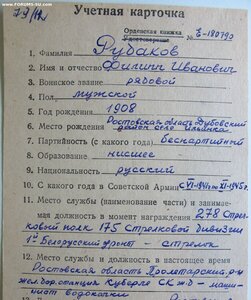 www.FORUMS-SU.com
Учетная карточка
Орденская книжка
Удостоверение
1. Фамилия Рубаков
2. Имя и отчество Филипп Иванович
3. Воинское звание рядовой
4. Пол мужской
5. Год рождения 1908
6. Место рождения Ростовская область Дубовский
район село Ильинка
7. Партийность (с какого года) беспартийный
8. Образование нисшее
9. Национальность русский
10. С какого года в Советской Армии с VI-1941 по XI-1945 г.
11. Место службы (наименование части) и занимае-
мая должность в момент награждения 278 Стрел-
ковый полк 175 Стрелковой Дивизии
1й Белорусский фронт - стрелок
12. Место службы и должность в настоящее время
Ростовская область Пролетарский р-н
жел.дор. станция Куберле СКЖД - маши-
нист водокачки